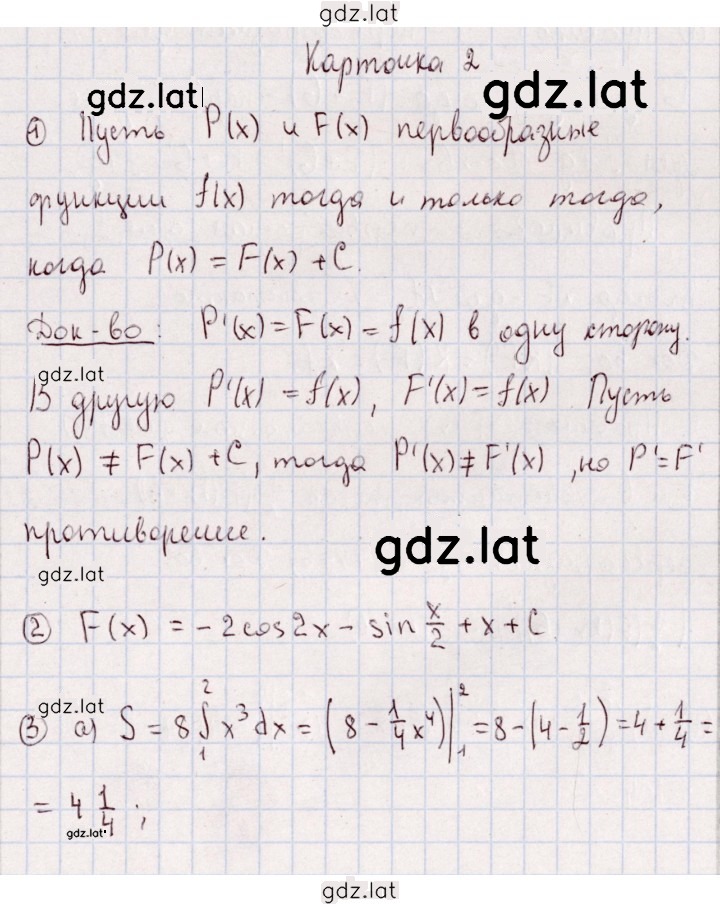 gdz.lat
Карточка 2
gdz.lat gdz.lat
① Пусть P(x) и F(x) первообразные
функции f(x) тогда и только тогда,
когда P(x) = F(x) + C.
Док-во: P'(x) = F(x) = f(x) в одну сторону.
gdz.lat
В другую P'(x) = f(x), F'(x) = f(x) Пусть
P(x) ≠ F(x) + C, тогда P'(x) ≠ F'(x), но P' = F'
противоречие.
gdz.lat
gdz.lat
② F(x) = -2cos2x - sin x/2 + x + C
gdz.lat
③ а) S = 8 ∫₁² x³dx = (8 - 1/4 x⁴)|₁² = 8 - (4 - 1/2) = 4 + 1/4 =
= 4 1/4 ;
gdz.lat
gdz.lat